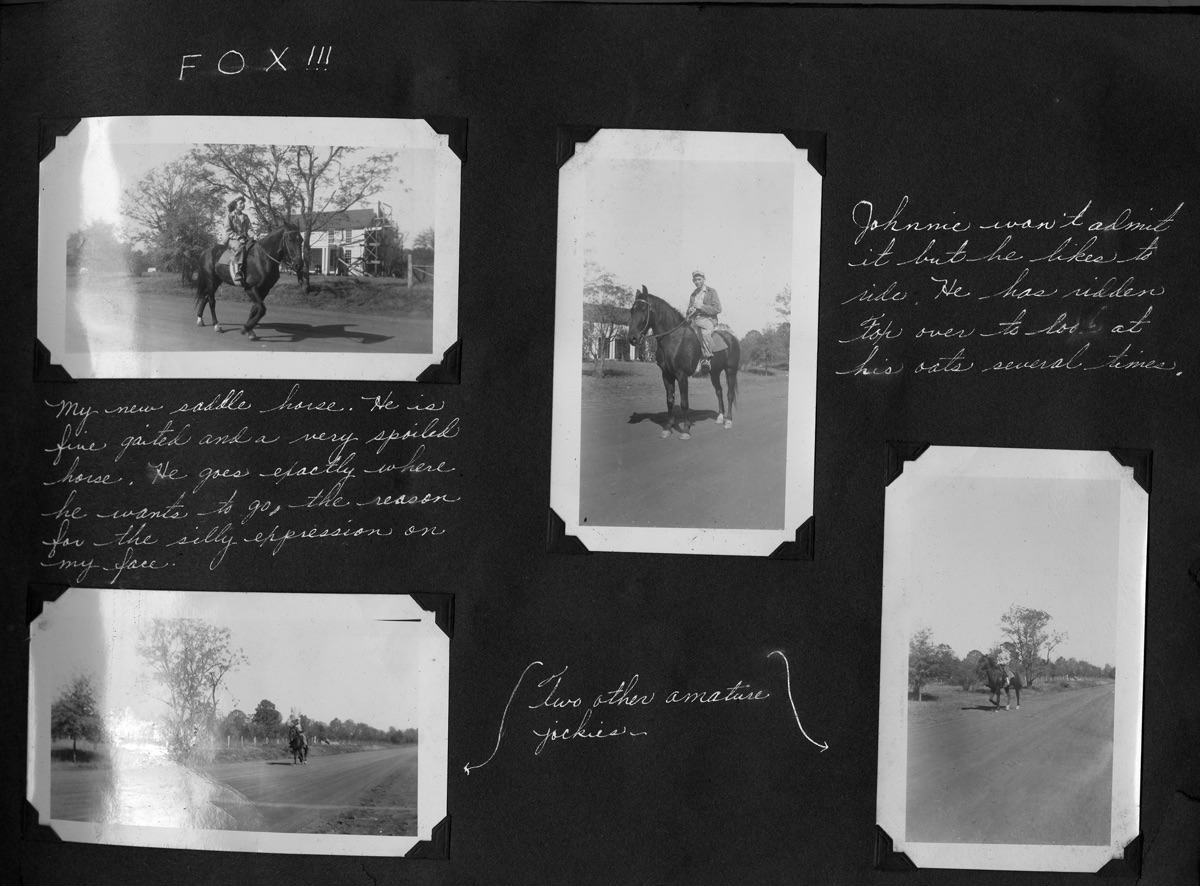 FOX!!!
My new saddle horse. He is
five gaited and a very spoiled
horse. He goes exactly where
he wants to go, the reason
for the silly expression on
my face.
Johnnie won't admit
it but he likes to
ride. He has ridden
Fox over to look at
his oats several times.
Two other amature
jockies.